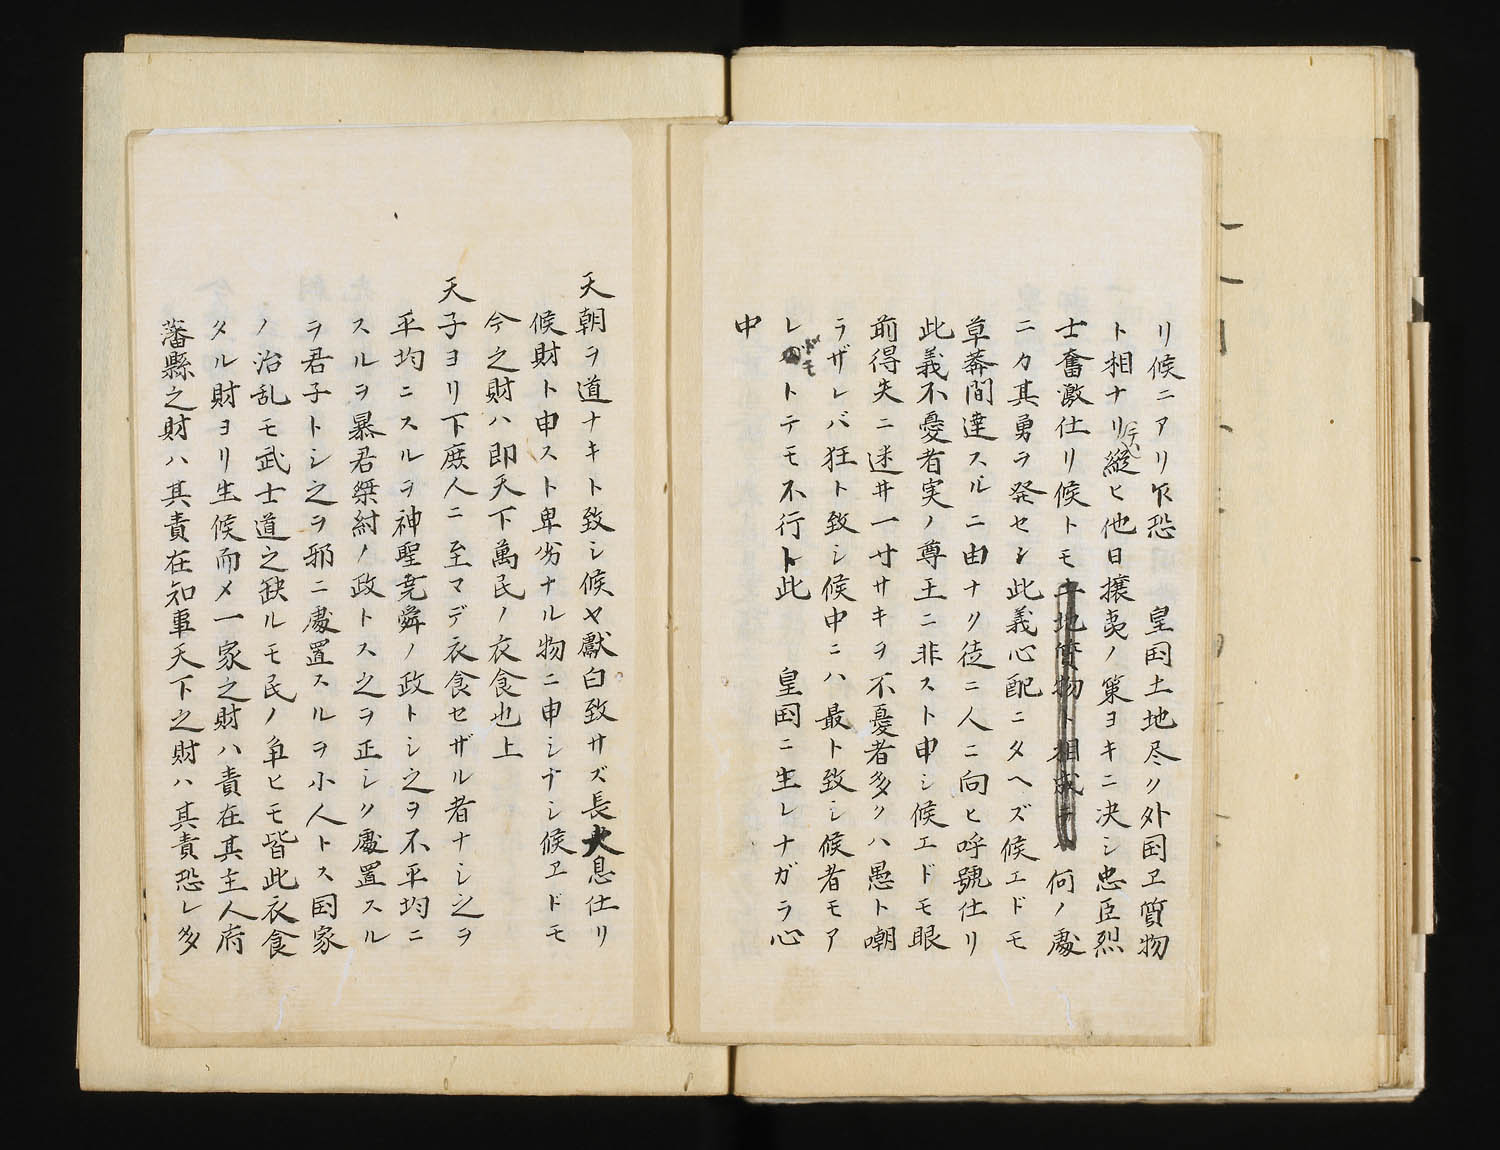 リ候ニアリ乍恐　皇国土地尽ク外国ヱ質物
ト相ナリテハ縦ヒ他日攘夷ノ策ヨキニ决シ忠臣烈
士奮激仕リ候トモ土地質物ト相成テハ何ノ處
ニカ其勇ヲ発セシ此義心配ニタヘズ候エドモ
草莽間達スルニ由ナク徒ニ人ニ向ヒ呼號仕リ
此義不憂者実ノ尊王ニ非スト申シ候エドモ眼
前得失ニ迷ヰ一寸サキヲ不憂者多クハ愚ト嘲
ラザレバ狂ト致シ候中ニハ最ト致シ候者モア
レドモトテモ不行ト此　皇国ニ生レナガラ心
中
天朝ヲ道ナキト致シ候ヤ獻白致サズ長大息仕リ
候財ト申スト卑劣ナル物ニ申シナシ候ヱドモ
今之財ハ即天下萬民ノ衣食也上
天子ヨリ下庶人ニ至マデ衣食セザル者ナシ之ヲ
平均ニスルヲ神聖堯舜ノ政トシ之ヲ不平均ニ
スルヲ暴君桀紂ノ政トス之ヲ正シク處置スル
ヲ君子トシ之ヲ邪ニ處置スルヲ小人トス国家
ノ治乱モ武士道之缺ルモ民ノ争ヒモ皆此衣食
タル財ヨリ生候而〆一家之財ハ責在其主人府
藩縣之財ハ其責在知事天下之財ハ其責恐レ多